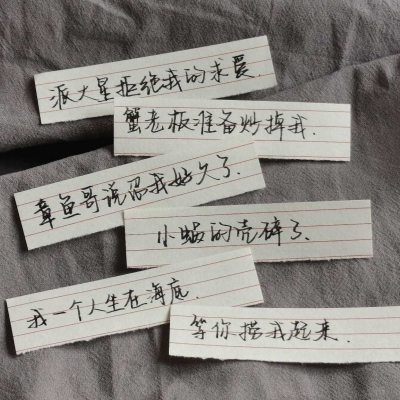 派大星拒绝我的求爱.
蟹老板准备炒掉我.
章鱼哥说忍我好久了.
小蜗的壳碎了.
我一个人坐在海底.
等你捞我起来.